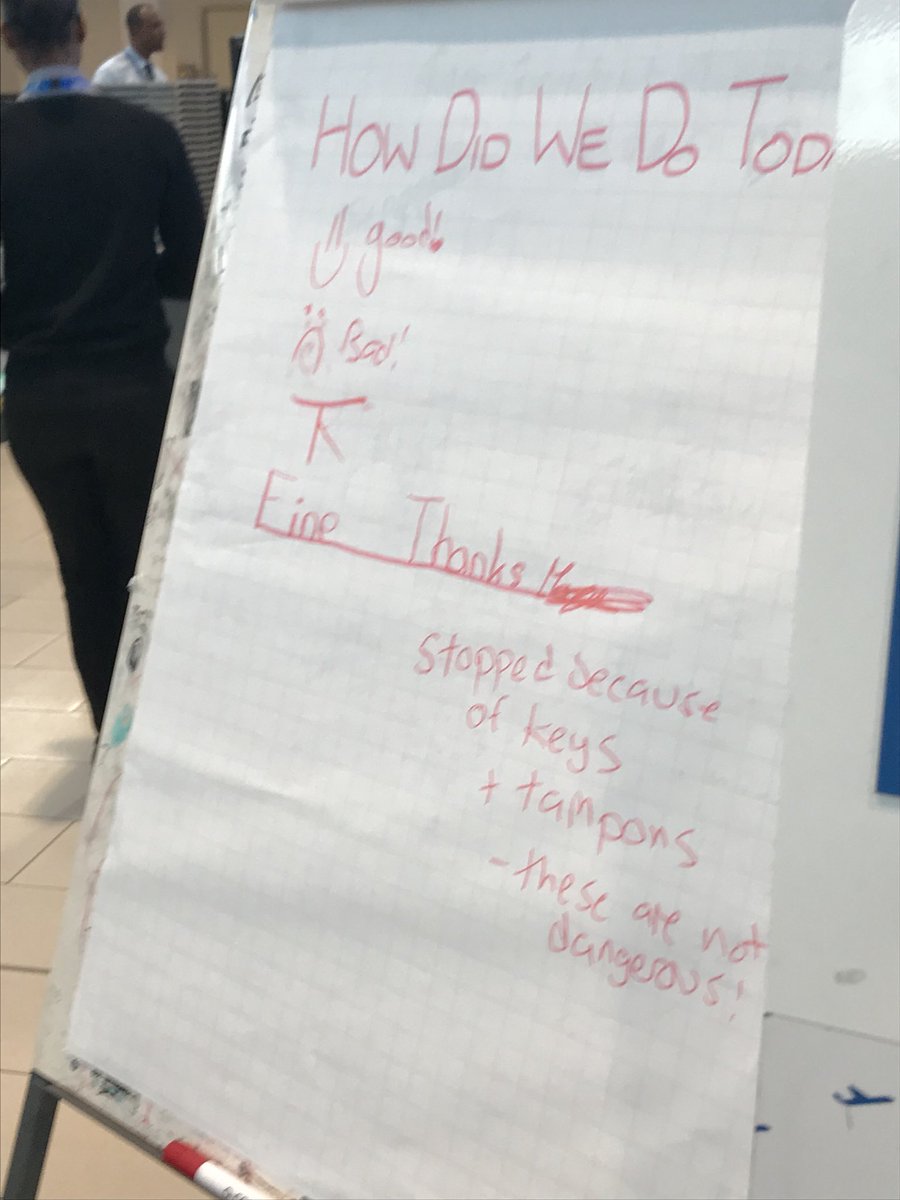 HOW DID WE DO TODA
good!
Bad!
K
Fine Thanks
Stopped because
of keys
+ tampons
- these are not
dangerous!